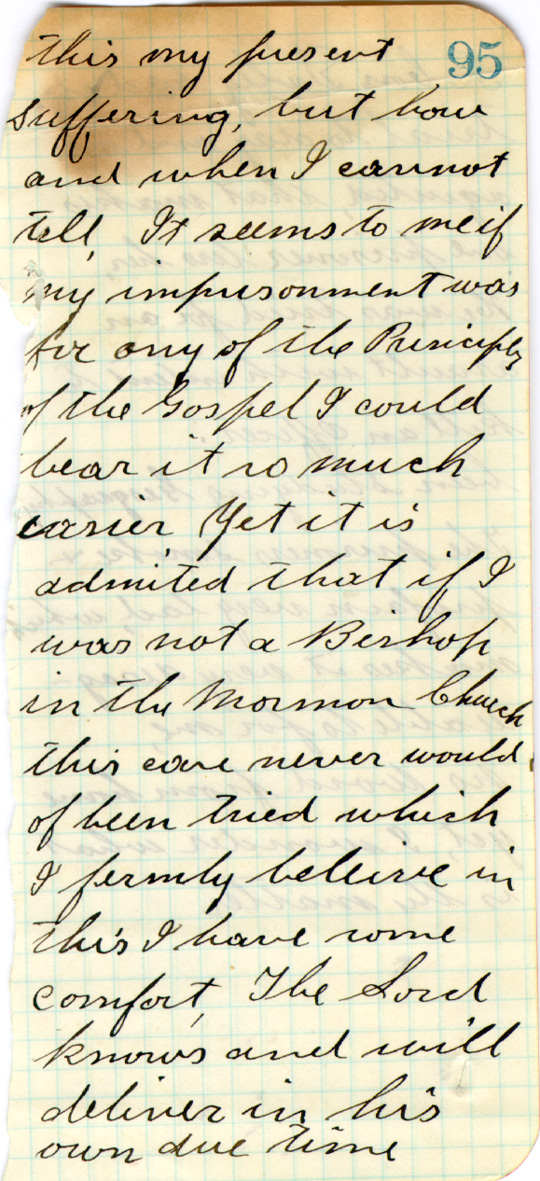 95
this my present
suffering, but how
and when I cannot
tell, It seems to me if
my imprisonment was
for any of the Principles
of the Gospel I could
bear it so much
easier Yet it is
admited that if I
was not a Bishop
in the Mormon Church
this case never would
of been tried which
I fermly beleive in
this I have some
comfort, The Lord
knows and will
deliver in his
own due time